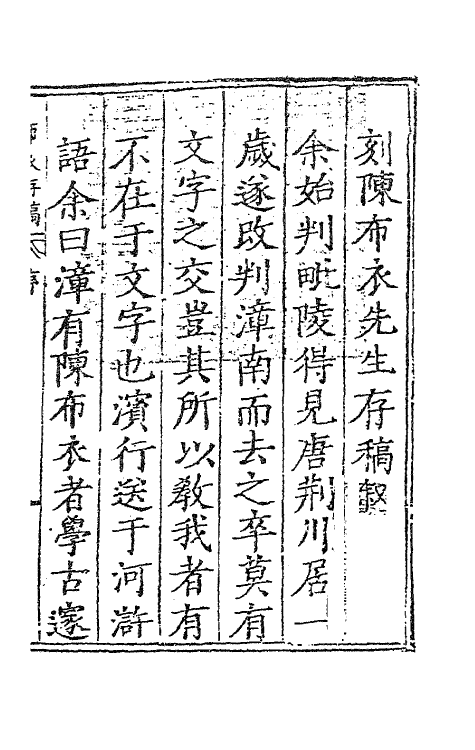 刻陳布衣先生存稿敘
余始判毗陵得見唐荆川居一
歲遂改判漳南而去之卒莫有
文字之交豈其所以教我者有
不在于文字也濱行送于河滸
語余曰漳有陳布衣者學古邃
布衣存稿 序